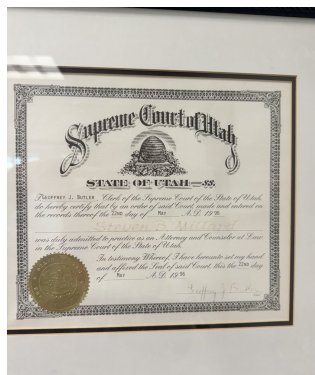 Supreme Court of Utah
STATE OF UTAH—ss.
I, GEOFFREY J. BUTLER Clerk of the Supreme Court of the State of Utah,
do hereby certify that by an order of said Court made and entered on
the records thereof the 22nd day of May A.D. 19
was duly admitted to practice as an Attorney and Counselor at Law
in the Supreme Court of the State of Utah.
In testimony Whereof, I have hereunto set my hand
and affixed the Seal of said Court this the 22nd day
of May A.D. 19
Geoffrey J. Butler